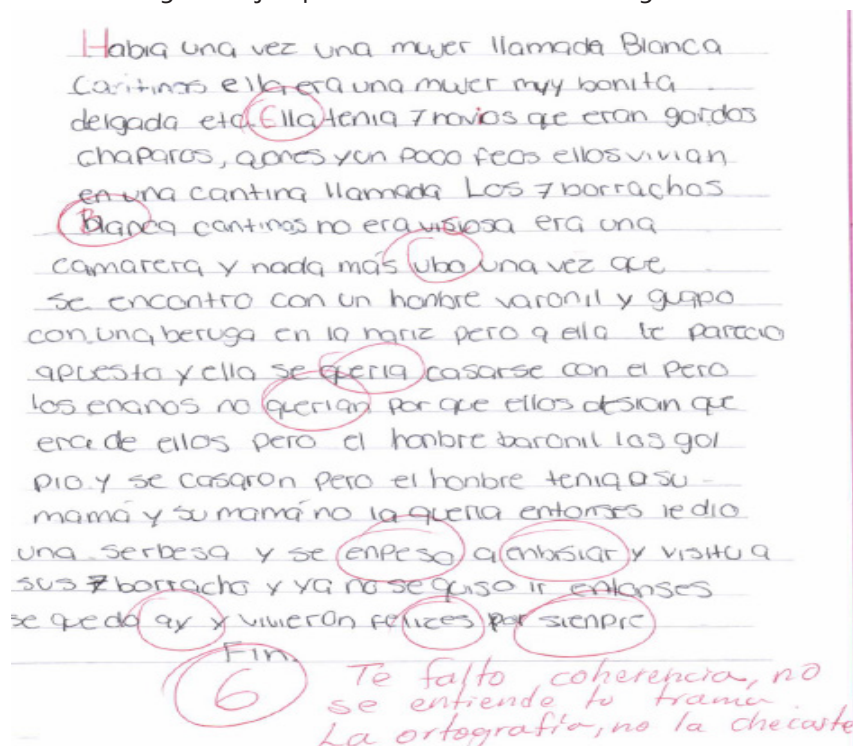 Habia una vez una mujer llamada Blanca
Cantinas ella era una mujer muy bonita
delgada etc. Ella tenia 7 novios que eran gordos
chaparos, y un poco feos ellos vivian
en una cantina llamada Los 7 borrachos
Blanca cantinas no era visiosa era una
camarera y nada más ubo una vez que
se encontro con un honbre varonil y guapo
con una beruga en la nariz pero a ella le parecio
apuesto y ella se queria casarse con el pero
los enanos no querian por que ellos desian que
era de ellos pero el honbre baronil las gol
pio y se casaron pero el honbre tenia a su
mamá y su mamá no la queria entonses le dio
una serbesa y se enpeso a enbrsiar y visito a
sus 7 borracho y ya no se quiso ir entonses
se quedo ay y vivieron felizes por sienpre
Fin.
6
Te falto coherencia, no
se entiende tu trama.
La ortografía, no la checaste